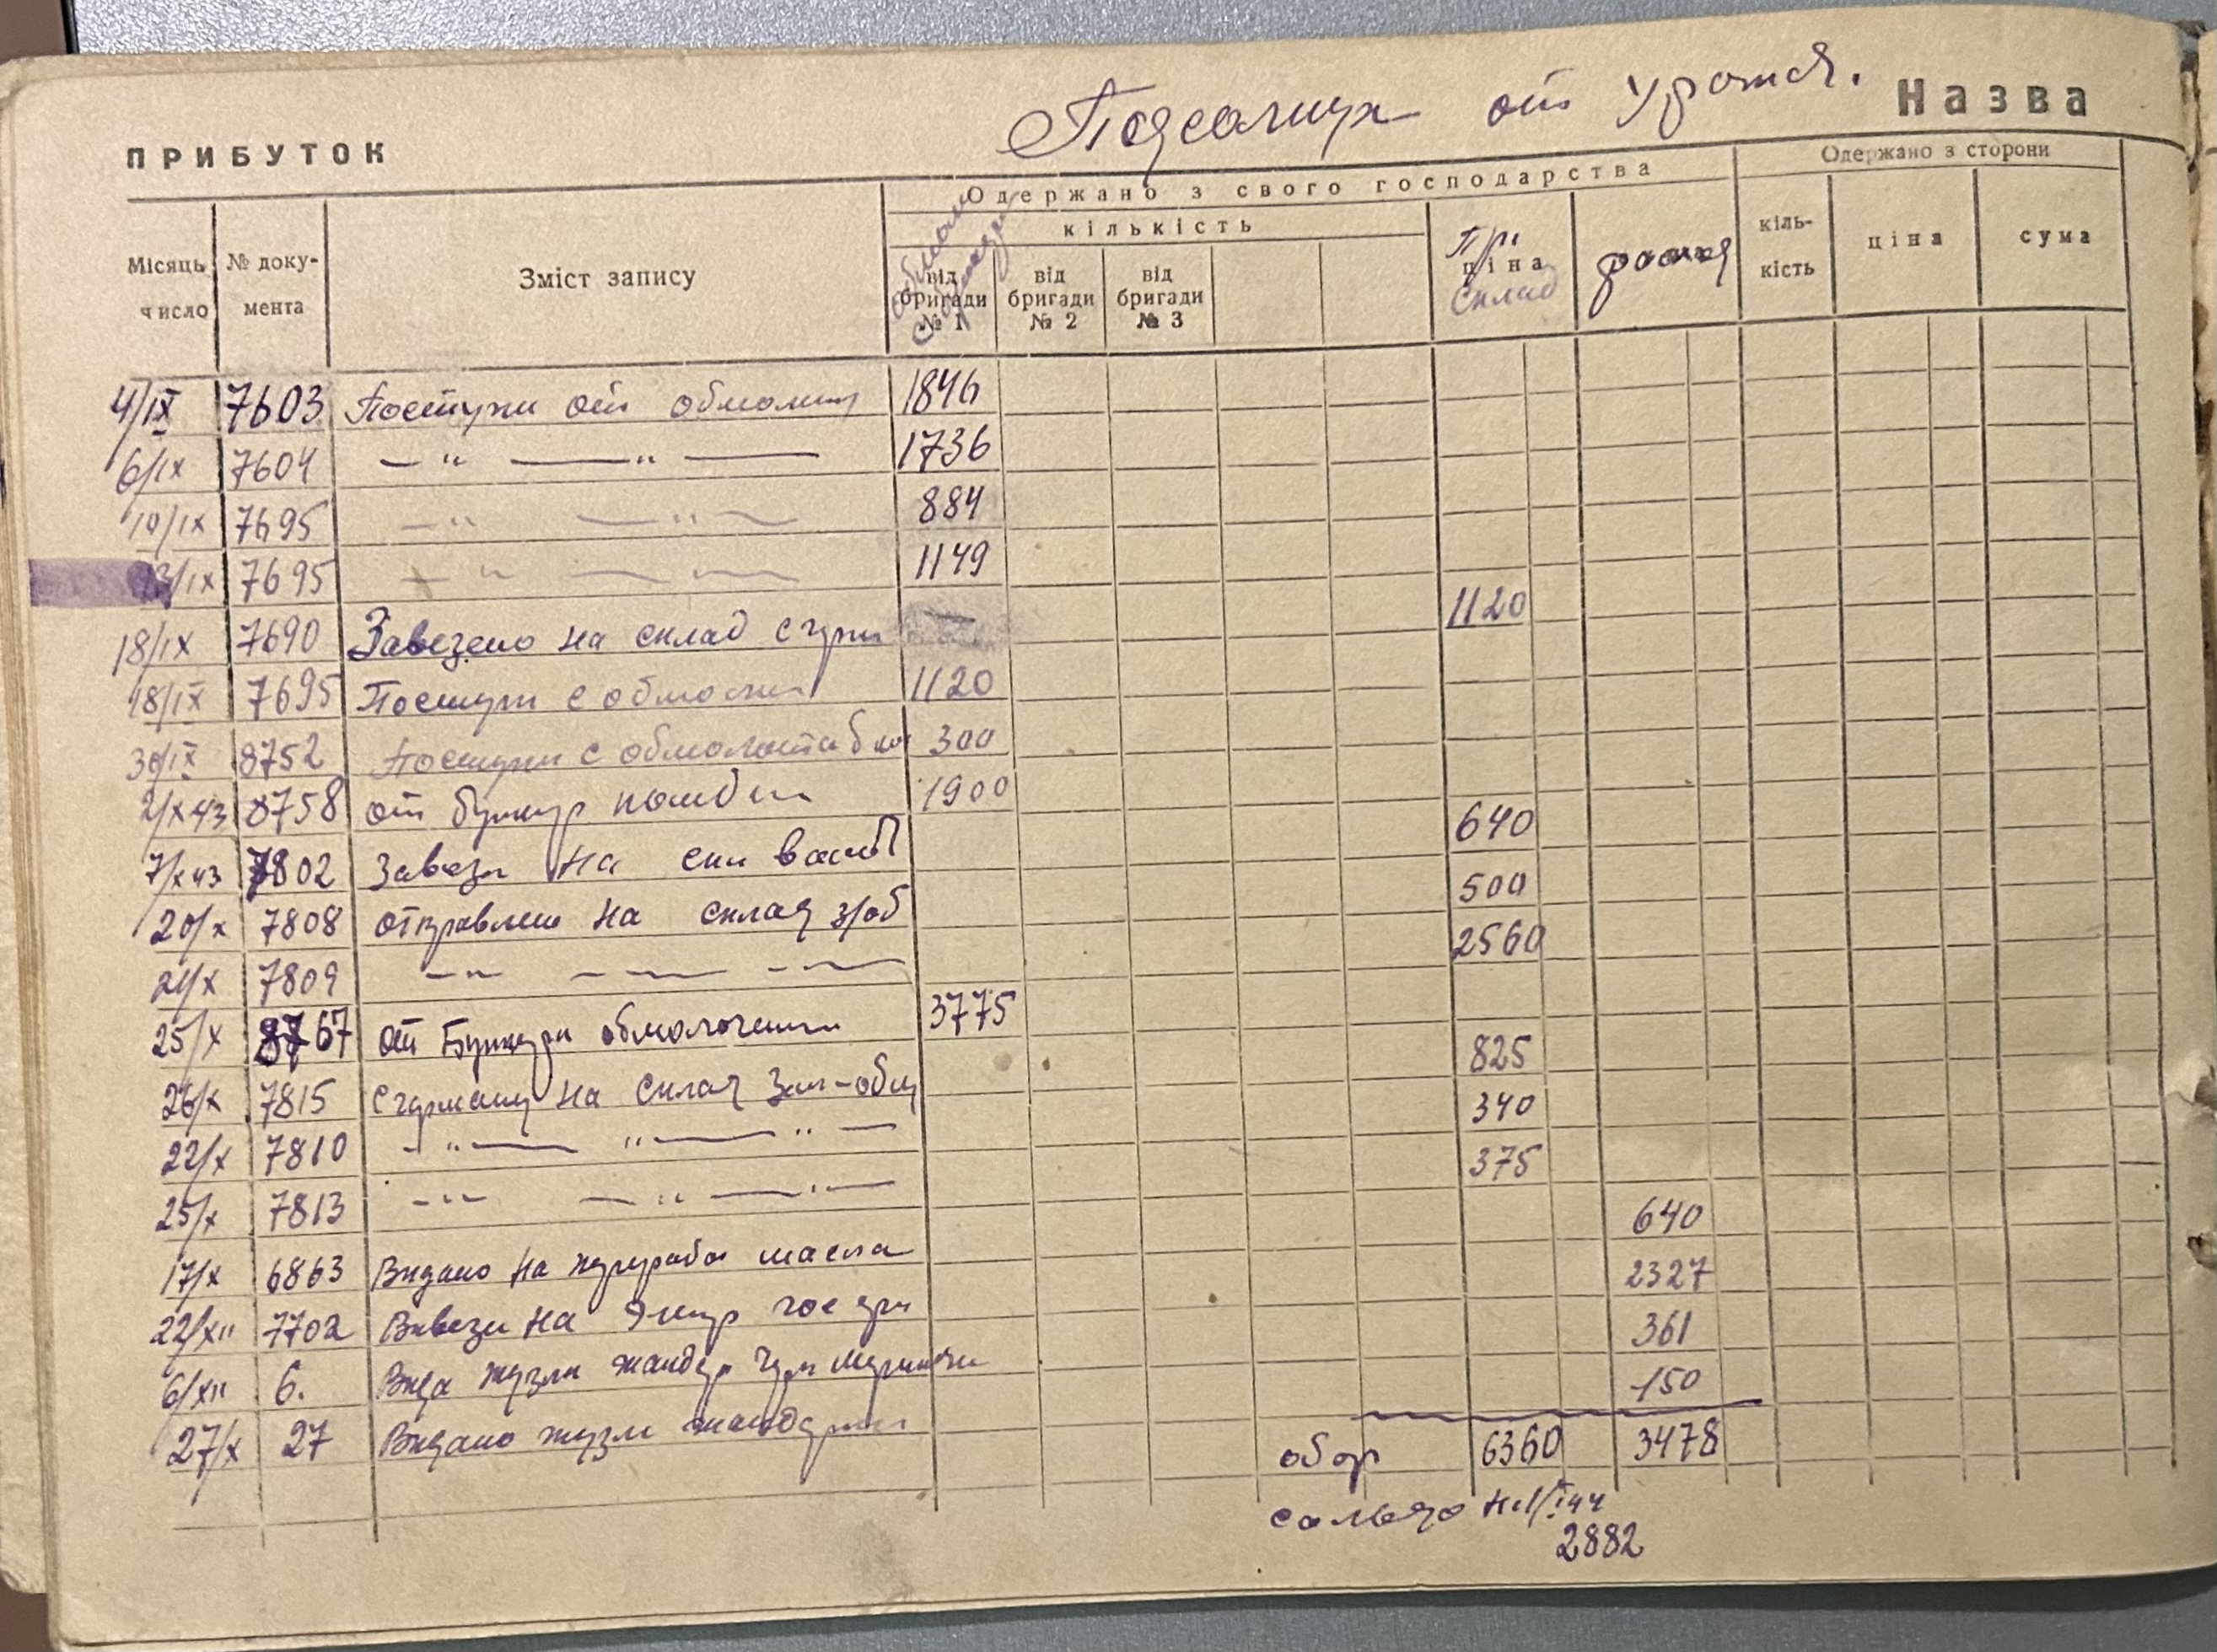 Подсолнух от урожая.
Назва
ПРИБУТОК
Одержано з свого господарства
Одержано з сторони
Місяць число
№ документа
Зміст запису
кількість
від бригади № 1
від бригади № 2
від бригади № 3
Пр. ціна склад
кіль-кість
ціна
сума
4/IX 7603 Поступи от обмолот 1846
6/IX 7604 — " — " — 1736
10/IX 7695 — " — " — 884
13/IX 7695 — " — " — 1149
18/IX 7690 Завезено на склад 1120
18/IX 7695 Поступи с обмолот 1120
30/IX 8752 Поступи с обмолота 300
2/X 43 8758 от бункер комбайн 1900
7/X 43 7802 Завези на 640
20/X 7808 отправлено на склад з/об 500
21/X 7809 — " — " — " — 2560
25/X 8767 от Бункера обмолочении 3775
26/X 7815 на склад Заг-обм 825
22/X 7810 — " — " — " — 340
25/X 7813 — " — " — " — 375
17/X 6863 Видано на масла 640
22/XII 7702 Вивези на 2327
6/XII 6. Вида жандар 361
27/X 27 Видано жандарм 150
обор 6360 3478
сальдо на 1/I 44
2882